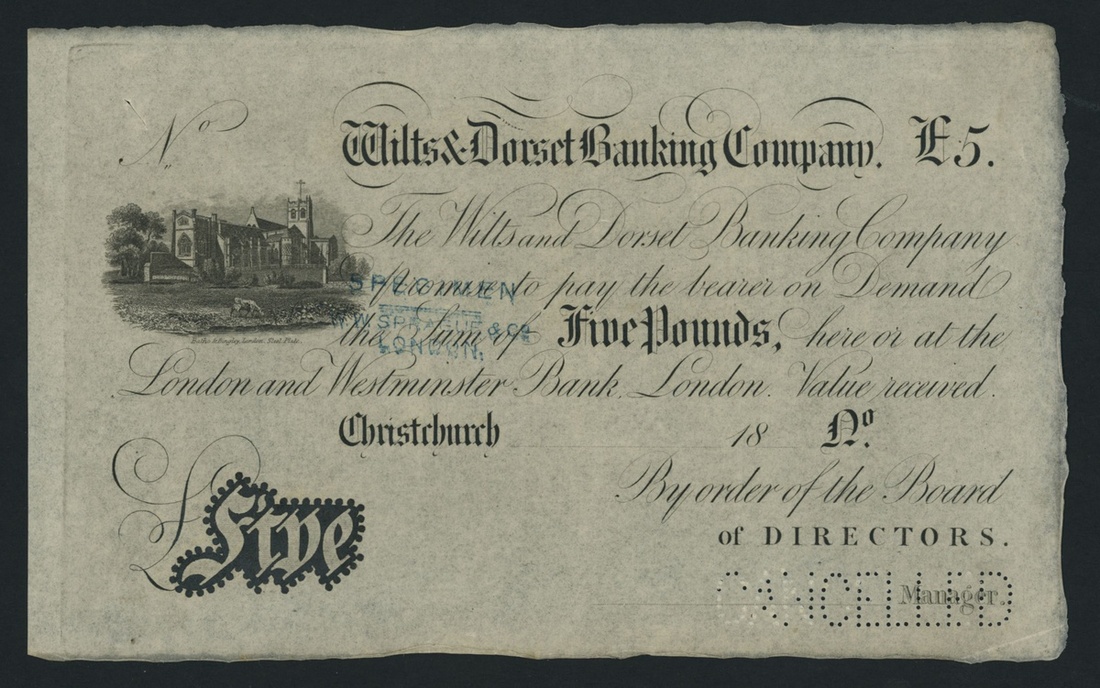 No
Wilts & Dorset Banking Company. £5.
The Wilts and Dorset Banking Company
promise to pay the bearer on Demand
the Sum of Five Pounds, here or at the
London and Westminster Bank, London. Value received.
Christchurch 18 No.
SPECIMEN
W.W. SPRAGUE & Co.
LONDON.
London. Steel Plate.
£ Five
By order of the Board
of DIRECTORS.
Manager.
CANCELLED